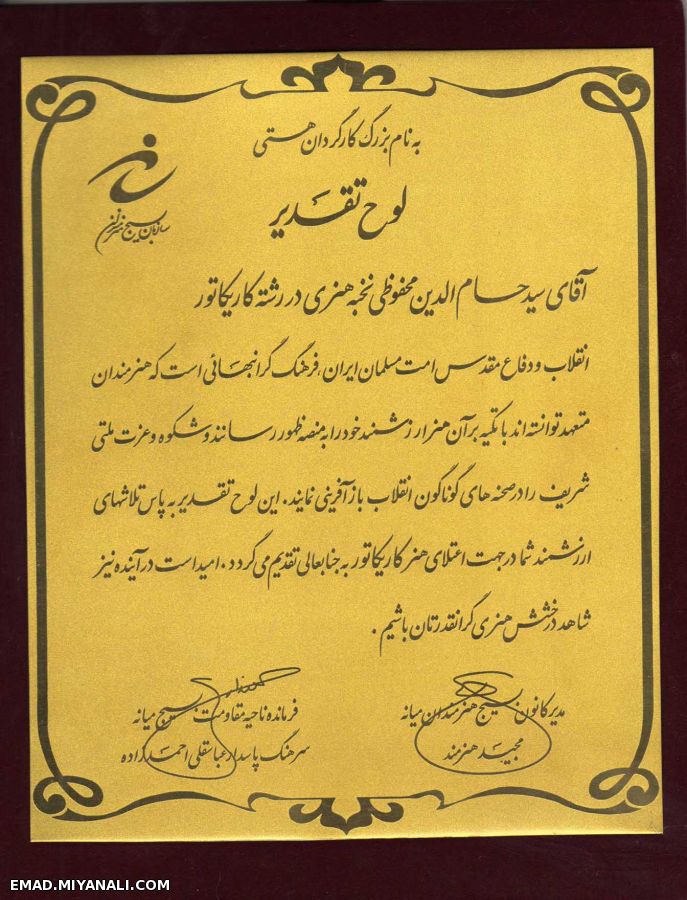 به نام بزرگ کارگردان هستی
لوح تقدیر
سازمان بسیج هنرمندان
آقای سید حسام الدین محفوظی نخبه هنری در رشته کاریکاتور
انقلاب و دفاع مقدس امت مسلمان ایران، فرهنگ گرانبهائی است که هنرمندان
متعهد توانسته اند با تکیه بر آن هنر ارزشمند خود را به منصه ظهور رسانند و شکوه و عزت ملتی
شریف را در صحنه های گوناگون انقلاب باز آفرینی نمایند. این لوح تقدیر به پاس تلاشهای
ارزشمند شما در جهت اعتلای هنر کاریکاتور به جنابعالی تقدیم می گردد. امید است در آینده نیز
شاهد درخشش هنری گرانقدرتان باشیم.
مدیر کانون بسیج هنرمندان میانه
مجید هنرمند
فرمانده ناحیه مقاومت بسیج میانه
سرهنگ پاسدار عباسقلی احمدزاده
EMAD.MIYANALI.COM